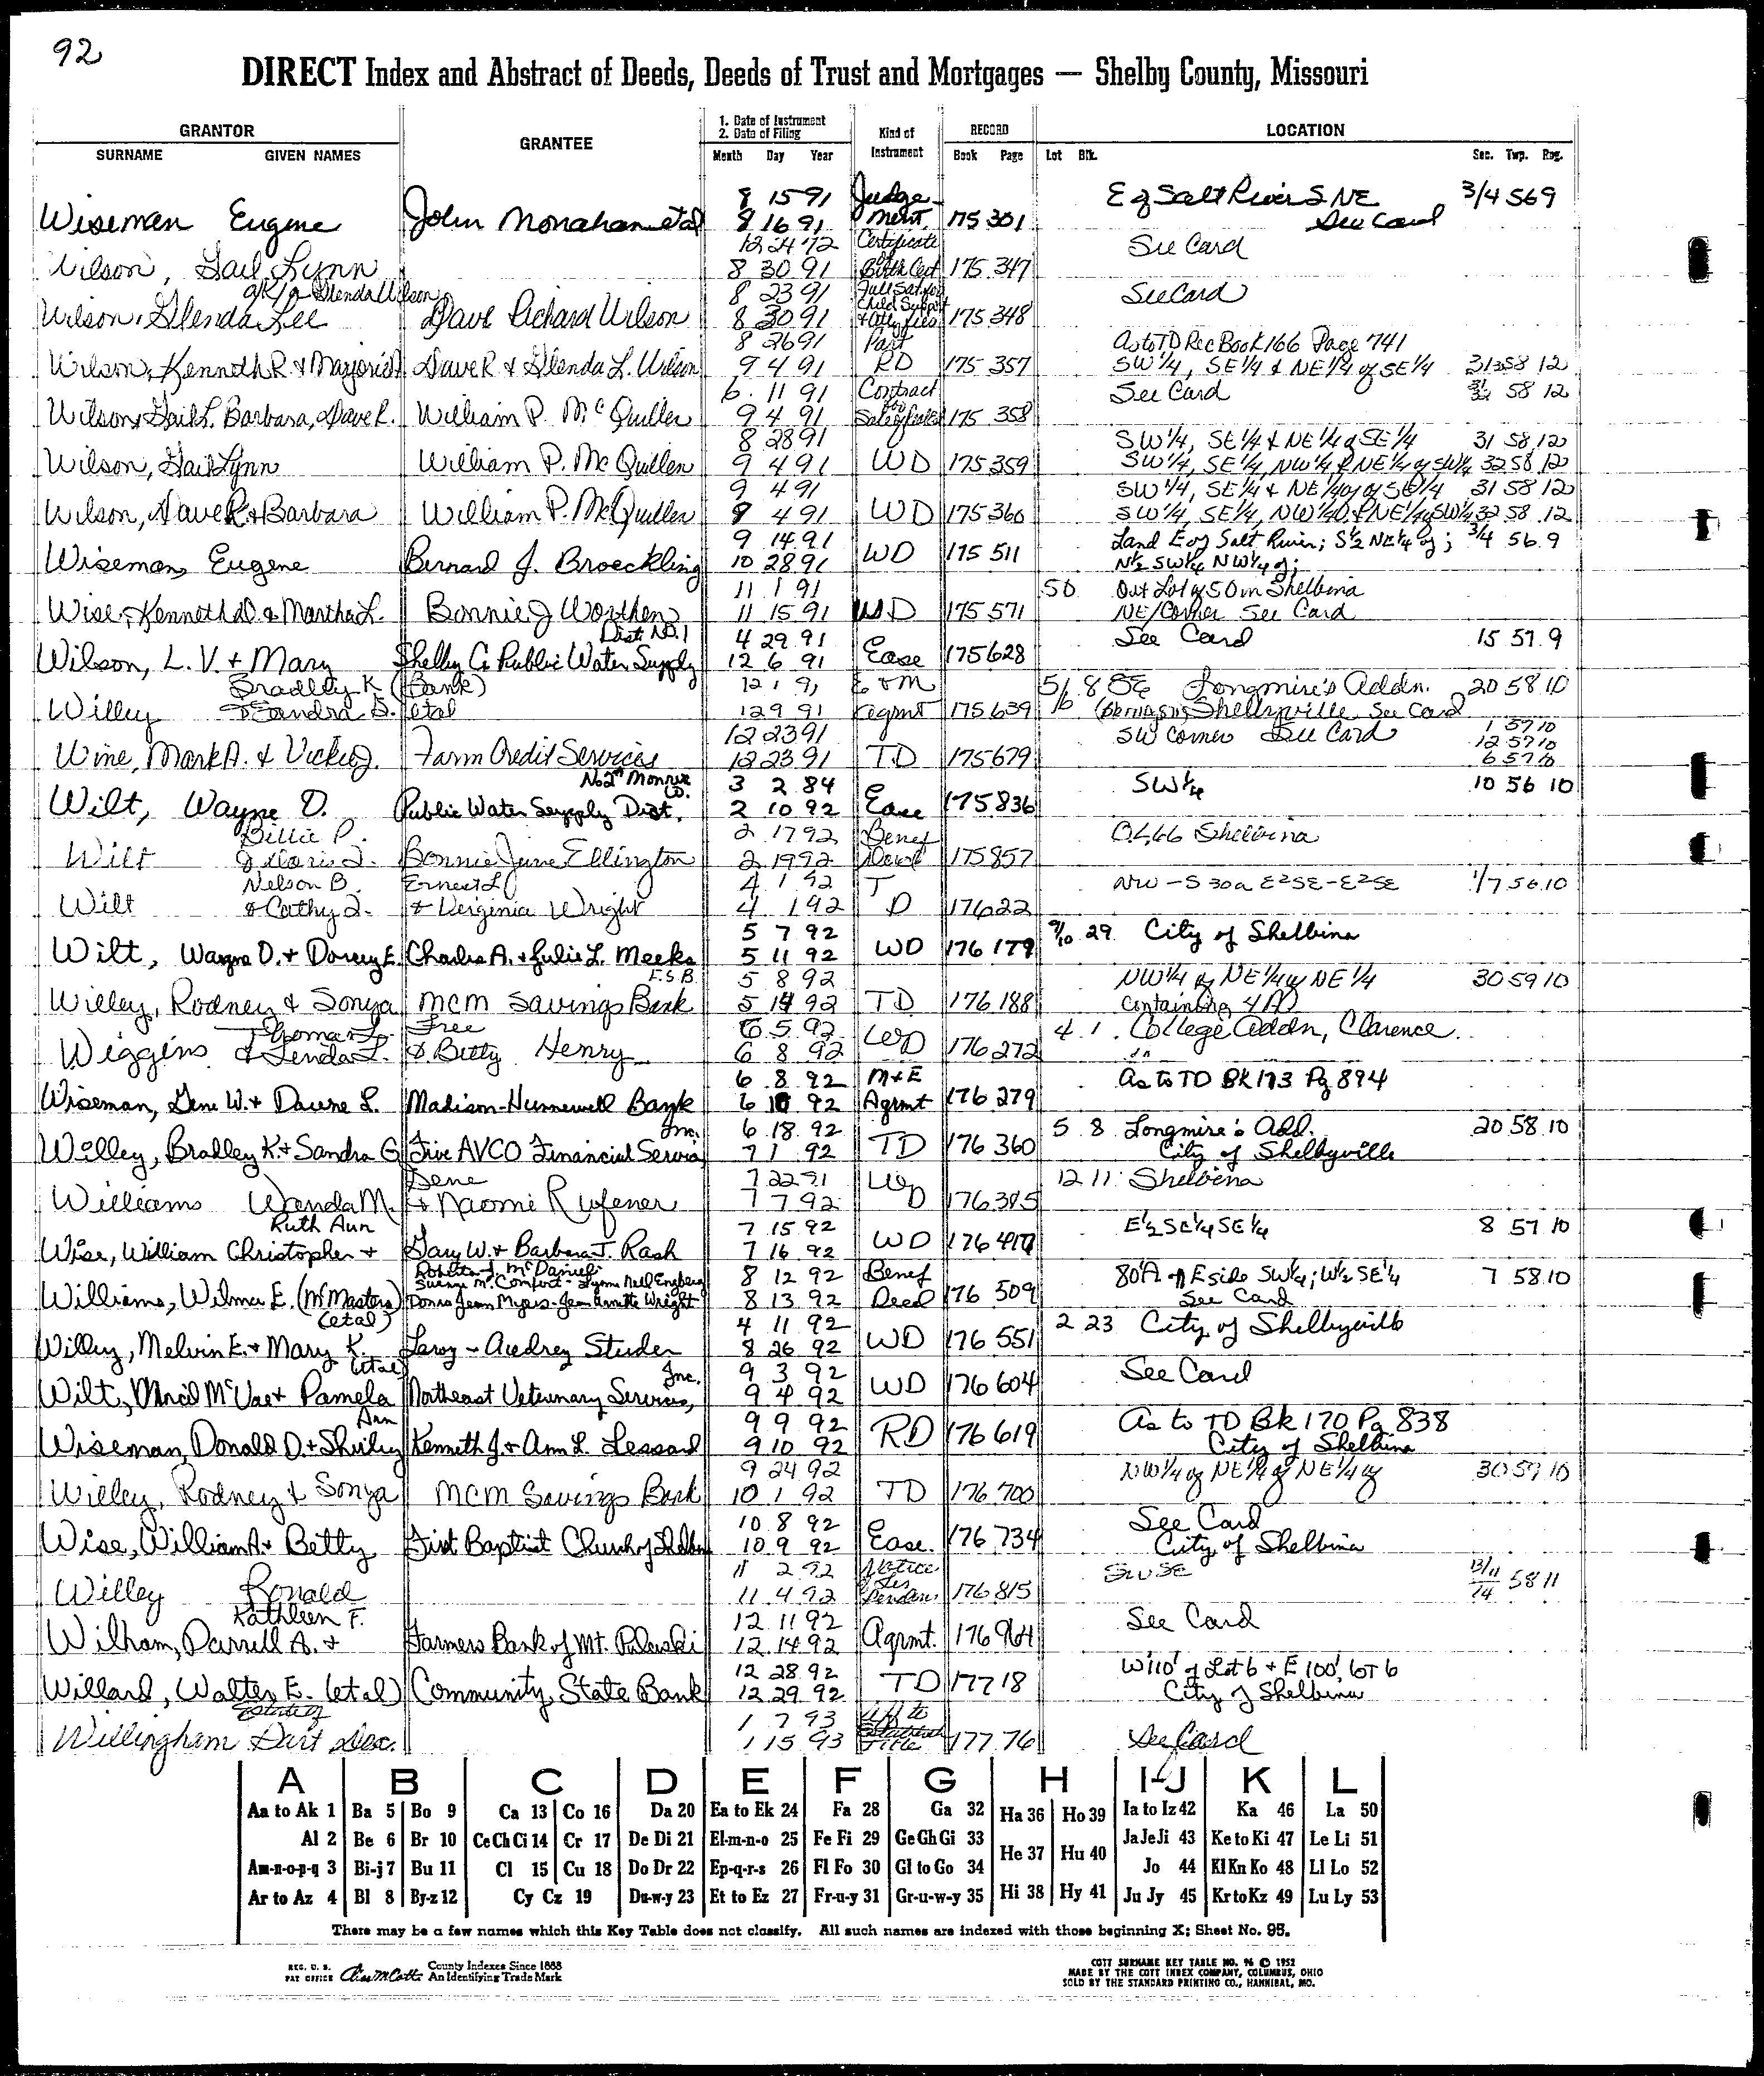 92
DIRECT Index and Abstract of Deeds, Deeds of Trust and Mortgages — Shelby County, Missouri
GRANTOR GRANTEE 1. Date of Instrument 2. Date of Filing Kind of Instrument RECORD LOCATION
SURNAME GIVEN NAMES Month Day Year Book Page Lot Blk. Sec. Twp. Rng.
8 15 91 Judge- E of Salt River S NE 3/4 56 9
Wiseman Eugene John Monahan etal 8 16 91 ment. 175 301 See Card
12 24 72 Certificate See Card
Wilson, Gail Lynn 8 30 91 Birth Cert 175 347
a/k/a Glenda Wilson 8 23 91 Full Sat. for See Card
Wilson, Glenda Lee Dave Richard Wilson 8 30 91 Child Support + Atty fees 175 348
8 26 91 Part As to TD Rec Book 166 Page 741
Wilson, Kenneth R & Marjorie Dave R & Glenda L. Wilson 9 4 91 RD 175 357 SW 1/4, SE 1/4 & NE 1/4 of SE 1/4 31 58 12
6 11 91 Contract See Card 31/32 58 12
Wilson, Gail L. Barbara, Dave R. William P. McQuillen 9 4 91 175 358
8 28 91 SW 1/4, SE 1/4 & NE 1/4 of SE 1/4 31 58 12
Wilson, Gail Lynn William P. McQuillen 9 4 91 WD 175 359 SW 1/4, SE 1/4, NW 1/4 & NE 1/4 of SW 1/4 32 58 12
9 4 91 SW 1/4, SE 1/4 & NE 1/4 of SE 1/4 31 58 12
Wilson, Dave R. & Barbara William P. McQuillen 9 4 91 WD 175 360 SW 1/4, SE 1/4, NW 1/4 & NE 1/4 of SW 1/4 32 58 12
9 14 91 Land E of Salt River; S 1/2 NE 1/4 of; 3/4 56 9
Wiseman, Eugene Bernard J. Broeckling 10 28 91 WD 175 511 N 1/2 SW 1/4 NW 1/4 of;
11 1 91 50 Out Lot of 50 in Shelbina
Wise, Kenneth D. & Martha L. Bonnie J Worthen 11 15 91 WD 175 571 NE/Corner See Card
Dist. No. 1 4 29 91 See Card 15 57 9
Wilson, L. V. + Mary Shelby Co Public Water Supply 12 6 91 Ease 175 628
Bradley K (Bank) 12 1 91 E & M 5/6 8 Longmire's Addn. 20 58 10
Willey & Sandra G. etal 12 9 91 Agmt 175 639 Shelbyville See Card
12 23 91 SW Corner See Card 1 57 10
Wine, Mark A. & Vickie J. Farm Credit Services 12 23 91 TD 175 679 12 57 10
6 57 10
No 2 Monroe Co. 3 2 84 SW 1/4 10 56 10
Wilt, Wayne D. Public Water Supply Dist. 2 10 92 Ease 175 836
Billie P. 2 17 92 Benef OL 66 Shelbina
Wilt & Doris J. Bonnie June Ellington 2 19 92 Deed 175 857
Nelson B. Ernest L 4 1 92 T NW-S 30a E2SE-E2SE 1/7 56 10
Wilt & Cathy J. & Verginia Wright 4 1 92 D 176 22
5 7 92 9/10 29 City of Shelbina
Wilt, Wayne D. + Dorcey E. Charles A. + Julie L. Meeks 5 11 92 WD 176 179
F.S.B. 5 8 92 NW 1/4 of NE 1/4 of NE 1/4 30 59 10
Willey, Rodney & Sonya MCM Savings Bank 5 14 92 TD 176 188 Containing 4 A
Thomas L. Free 6 5 92 4 1 College Addn, Clarence
Wiggins & Lenda L. & Betty Henry 6 8 92 WD 176 272
6 8 92 M+E As to TD Bk 173 Pg 894
Wiseman, Gene W. + Daune L. Madison-Hunnewell Bank 6 10 92 Agrmt 176 279
Inc. 6 18 92 5 8 Longmire's Add. 20 58 10
Willey, Bradley K. + Sandra G AVCO Financial Service 7 1 92 TD 176 360 City of Shelbyville
Gene 7 22 91 12 11 Shelbina
Williams Wanda M. & Naomi Rufener 7 7 92 WD 176 385
Ruth Ann 7 15 92 E 1/2 SE 1/4 SE 1/4 8 57 10
Wise, William Christopher + Gary W. + Barbara J. Rash 7 16 92 WD 176 417
Roberta J. McDaniel
Susan McComfort - Lynne Nell Engberg 8 12 92 Benef 80 A off E side SW 1/4; W 1/2 SE 1/4 7 58 10
Williams, Wilma E. (McMasters) Donna Jean Myers - Jean Annette Wright 8 13 92 Deed 176 509 See Card
(etal) 4 11 92 2 23 City of Shelbyville
Willey, Melvin E. + Mary K. Leroy - Audrey Studer 8 26 92 WD 176 551
(etal) Inc. 9 3 92 See Card
Wilt, + Pamela Northeast Veterinary Services, 9 4 92 WD 176 604
Ann 9 9 92 As to TD Bk 170 Pg 838
Wiseman, Donald D. + Shirley Kenneth J. + Ann L. Lessard 9 10 92 RD 176 619 City of Shelbina
9 24 92 NW 1/4 of NE 1/4 of NE 1/4 of 30 59 10
Willey, Rodney & Sonya MCM Savings Bank 10 1 92 TD 176 700
10 8 92 See Card
Wise, William A. + Betty First Baptist Church of Shelbina 10 9 92 Ease. 176 734 City of Shelbina
11 2 92 Notice SW SE 13/11 58 11
Willey Ronald 11 4 92 Lis Pendens 176 815 14
Kathleen F. 12 11 92 See Card
Wilham, Darrell A. + Farmers Bank of Mt. Pulaski 12 14 92 Agrmt. 176 964
12 28 92 W 110' of Lot 6 + E 100' LOT 6
Willard, Walter E. (etal) Community State Bank 12 29 92 TD 177 18 City of Shelbina
Estate of 1 7 93 Aff to
Willingham Dart Dec. 1 15 93 Establish Title 177 76 See Card
A B C D E F G H I-J K L
Aa to Ak 1 Ba 5 Bo 9 Ca 13 Co 16 Da 20 Ea to Ek 24 Fa 28 Ga 32 Ha 36 Ho 39 Ia to Iz 42 Ka 46 La 50
Al 2 Be 6 Br 10 Ce Ch Ci 14 Cr 17 De Di 21 El-m-n-o 25 Fe Fi 29 Ge Gh Gi 33 He 37 Hu 40 Ja Je Ji 43 Ke to Ki 47 Le Li 51
Am-n-o-p-q 3 Bi-j 7 Bu 11 Cl 15 Cu 18 Do Dr 22 Ep-q-r-s 26 Fl Fo 30 Gl to Go 34 Jo 44 Kl Kn Ko 48 Ll Lo 52
Ar to Az 4 Bl 8 By-z 12 Cy Cz 19 Du-w-y 23 Et to Ez 27 Fr-u-y 31 Gr-u-w-y 35 Hi 38 Hy 41 Ju Jy 45 Kr to Kz 49 Lu Ly 53
There may be a few names which this Key Table does not classify. All such names are indexed with those beginning X; Sheet No. 95.
REG. U. S. PAT OFFICE County Indexes Since 1888 An Identifying Trade Mark
COTT SURNAME KEY TABLE NO. 96 © 1952
MADE BY THE COTT INDEX COMPANY, COLUMBUS, OHIO
SOLD BY THE STANDARD PRINTING CO., HANNIBAL, MO.